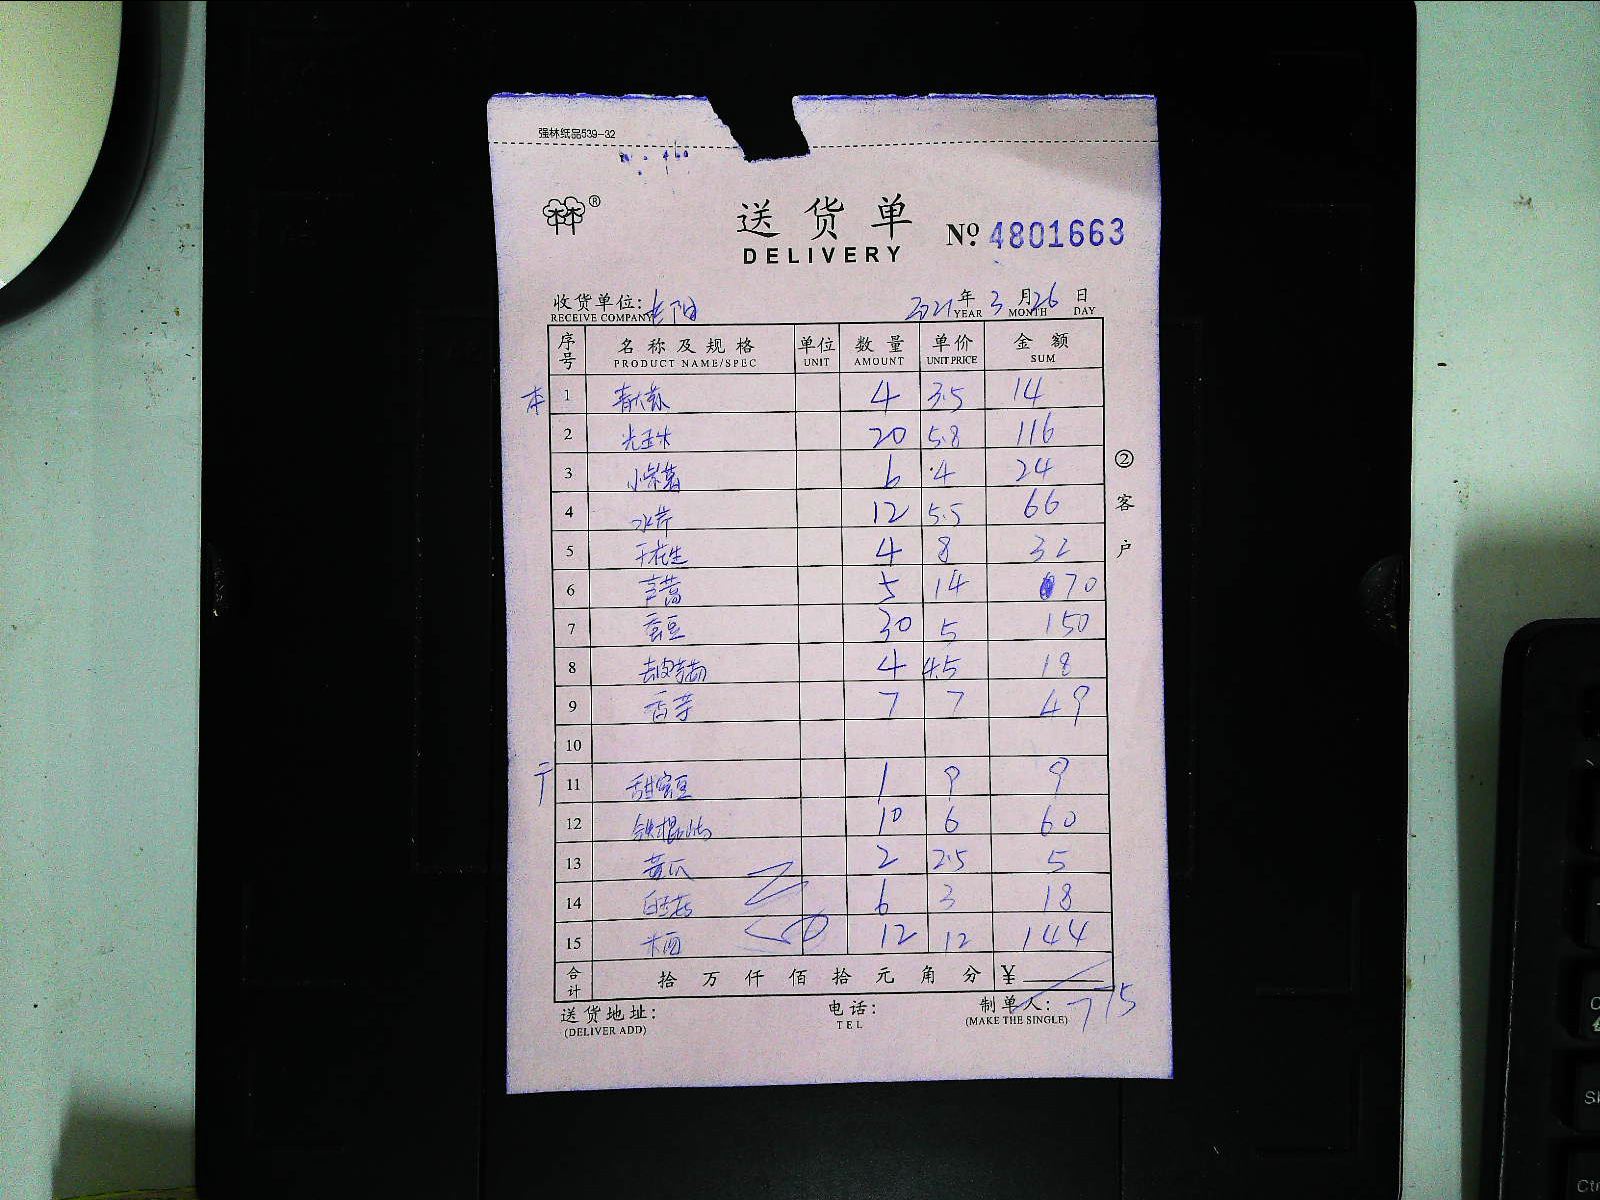 强林纸品539-32
®
送货单
DELIVERY
№ 4801663
收货单位: 阳 2021年3月26日
RECEIVE COMPANY YEAR MONTH DAY
序号 名称及规格 单位 数量 单价 金额
PRODUCT NAME/SPEC UNIT AMOUNT UNIT PRICE SUM
本 1 4 3.5 14
2 光玉米 20 5.8 116
3 小紫薯 6 4 24
4 水芹 12 5.5 66
5 干花生 4 8 32
6 5 14 70
7 蚕豆 30 5 150
8 4 4.5 18
9 香芋 7 7 49
10
干 11 甜蜜豆 1 9 9
12 铁棍山药 10 6 60
13 黄瓜 2 2.5 5
14 6 3 18
15 12 12 144
合计 拾万仟佰拾元角分 ¥ 775
送货地址: 电话: 制单人:
(DELIVER ADD) TEL (MAKE THE SINGLE)
②客户